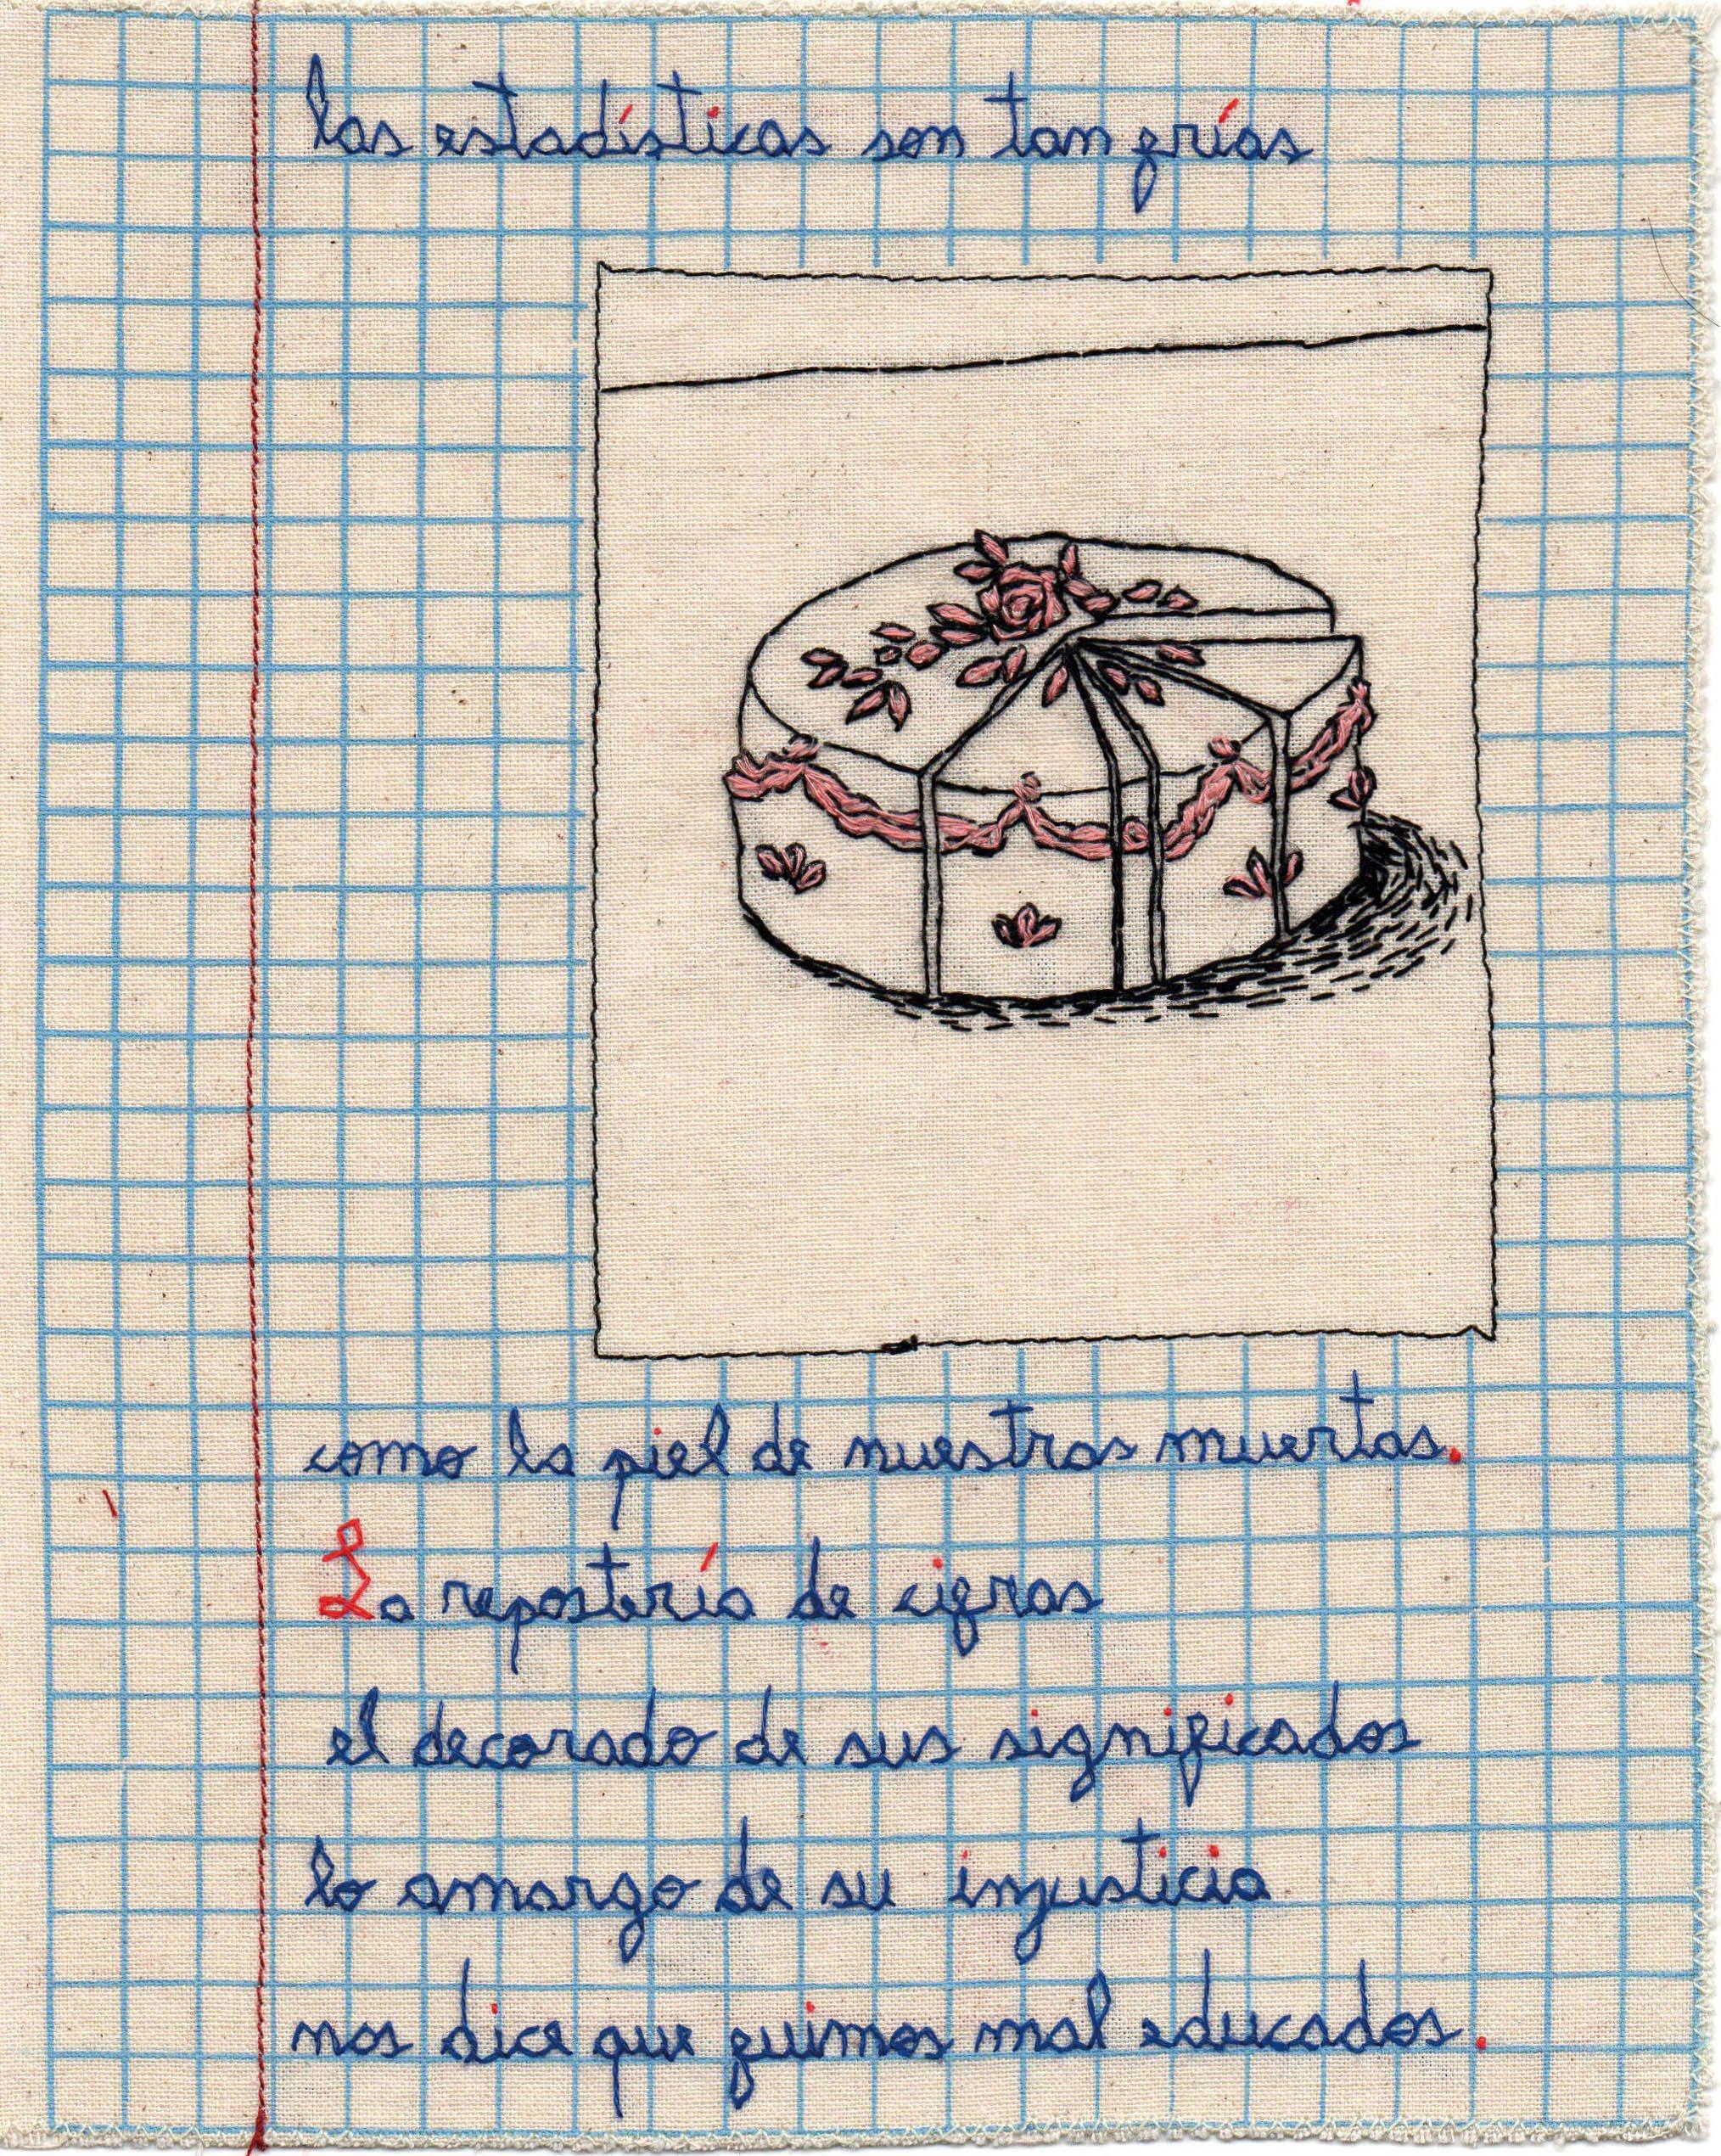 las estadísticas son tan frías
como la piel de nuestras muertas.
La repostería de cifras
el decorado de sus significados
lo amargo de su injusticia
nos dice que fuimos mal educados.